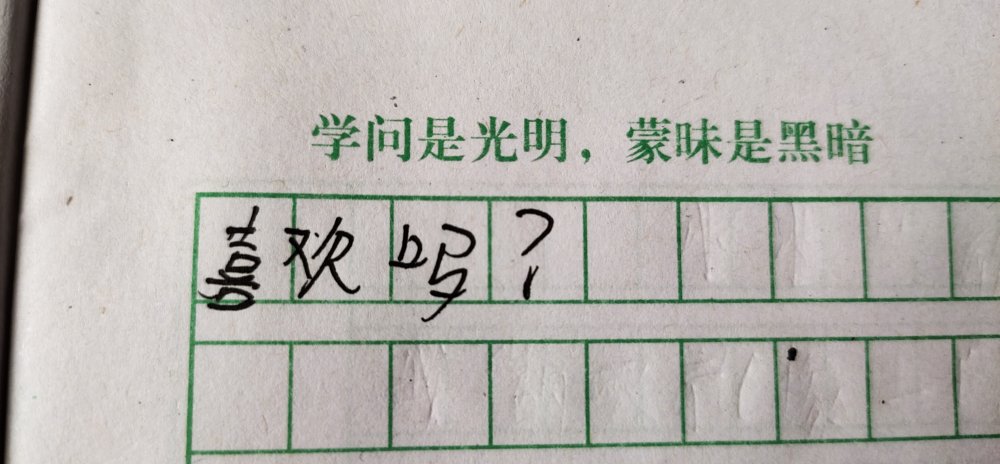 学问是光明，蒙昧是黑暗
喜欢吗？